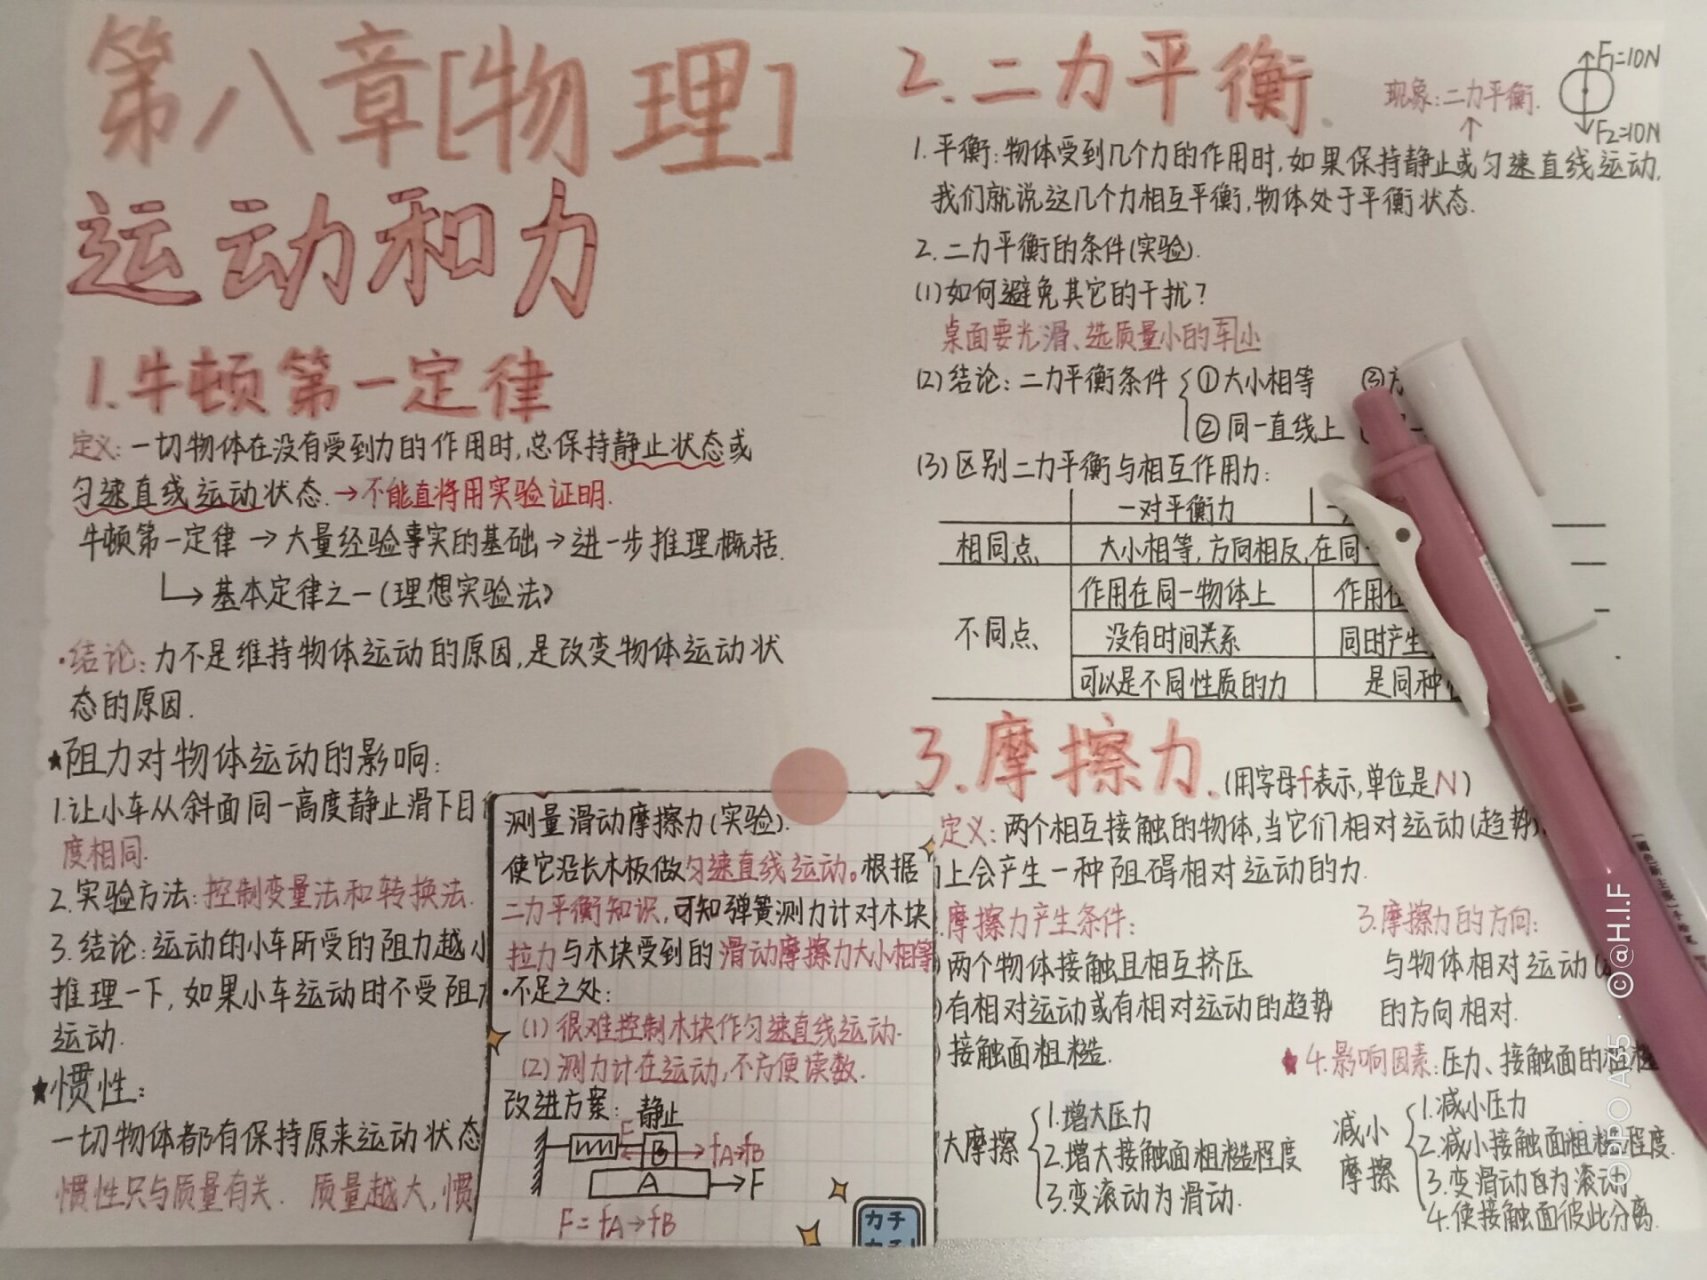 第八章[物理]
运动和力
1.牛顿第一定律
定义:一切物体在没有受到力的作用时,总保持静止状态或
匀速直线运动状态.→不能直将用实验证明.
牛顿第一定律→大量经验事实的基础→进一步推理概括.
↳基本定律之一(理想实验法)
·结论:力不是维持物体运动的原因,是改变物体运动状
态的原因.
★阻力对物体运动的影响:
1.让小车从斜面同一高度静止滑下目
度相同.
2.实验方法:控制变量法和转换法.
3.结论:运动的小车所受的阻力越小
推理一下,如果小车运动时不受阻力
运动.
★惯性:
一切物体都有保持原来运动状态
惯性只与质量有关. 质量越大,惯
测量滑动摩擦力(实验).
使它沿长木板做匀速直线运动。根据
二力平衡知识,可知弹簧测力计对木块
拉力与木块受到的滑动摩擦力大小相等
·不足之处:
(1)很难控制木块作匀速直线运动.
(2)测力计在运动,不方便读数.
改进方案: 静止
F B fA→fB
A →F
F=fA→fB
カチ
2.二力平衡.
现象:二力平衡.
F1=10N
F2=10N
1.平衡:物体受到几个力的作用时,如果保持静止或匀速直线运动.
我们就说这几个力相互平衡,物体处于平衡状态.
2.二力平衡的条件(实验).
(1)如何避免其它的干扰?
桌面要光滑、选质量小的车小
(2)结论:二力平衡条件{①大小相等 ③方
②同一直线上
(3)区别二力平衡与相互作用力:
一对平衡力 一
相同点 大小相等,方向相反,在同一
不同点 作用在同一物体上 作用在
没有时间关系 同时产生
可以是不同性质的力 是同种
3.摩擦力.(用字母f表示,单位是N)
定义:两个相互接触的物体,当它们相对运动(趋势)
上会产生一种阻碍相对运动的力.
摩擦力产生条件:
)两个物体接触且相互挤压
)有相对运动或有相对运动的趋势
)接触面粗糙.
3.摩擦力的方向:
与物体相对运动(
的方向相对.
★4.影响因素:压力、接触面的粗糙
大摩擦{1.增大压力
2.增大接触面粗糙程度
3.变滚动为滑动.
减小摩擦{1.减小压力
2.减小接触面粗糙程度.
3.变滑动自为滚动
4.使接触面彼此分离.
OPPO A55 · ©@H.I.F